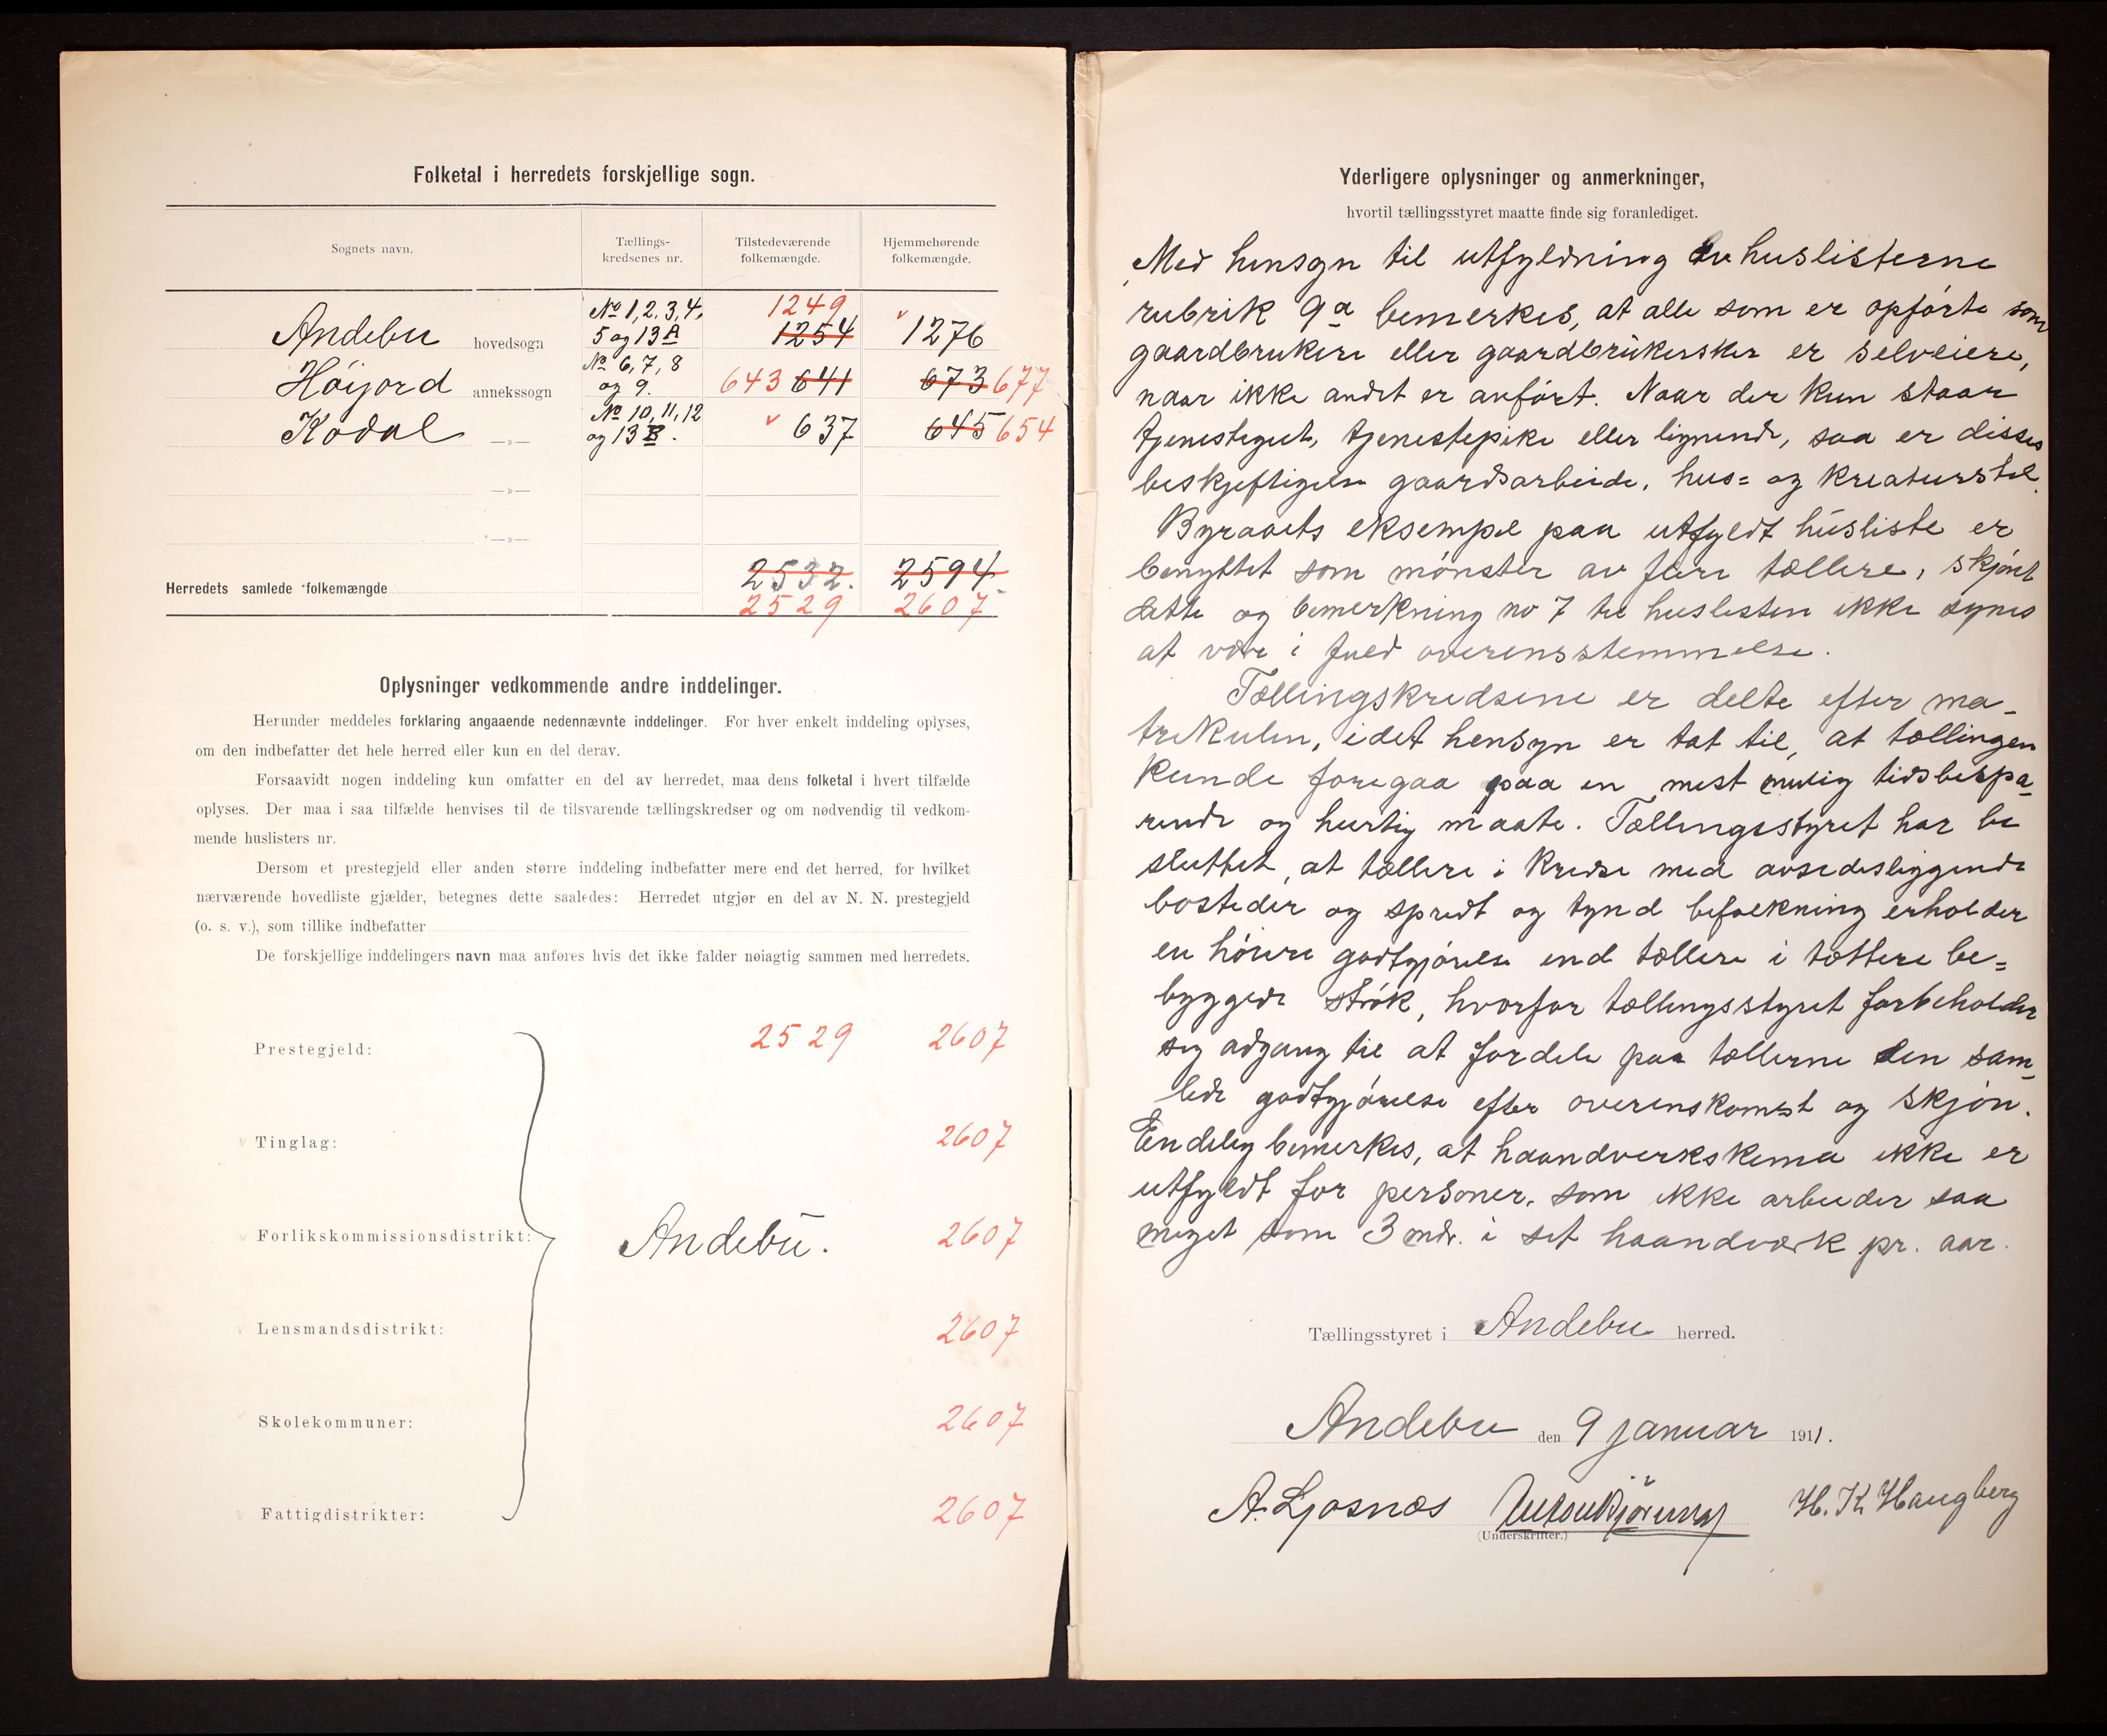 Folketal i herredets forskjellige sogn.
Sognets navn.
Tællings-
kredsenes nr.
Tilstedeværende
folkemængde.
Hjemmehørende
folkemængde.
Andebu hovedsogn
No 1, 2, 3, 4,
5 og 13 A
1249
1254
1276
Höijord annekssogn
No 6, 7, 8
og 9.
643 641
673 677
Kodal —»—
No 10, 11, 12
og 13 B.
637
645 654
—»—
—»—
2532. 2594
Herredets samlede folkemængde
2529 2607
Oplysninger vedkommende andre inddelinger.
Herunder meddeles forklaring angaaende nedennævnte inddelinger. For hver enkelt inddeling oplyses,
om den indbefatter det hele herred eller kun en del derav.
Forsaavidt nogen inddeling kun omfatter en del av herredet, maa dens folketal i hvert tilfælde
oplyses. Der maa i saa tilfælde henvises til de tilsvarende tællingskredser og om nødvendig til vedkom-
mende huslisters nr.
Dersom et prestegjeld eller anden større inddeling indbefatter mere end det herred, for hvilket
nærværende hovedliste gjælder, betegnes dette saaledes: Herredet utgjør en del av N. N. prestegjeld
(o. s. v.), som tillike indbefatter
De forskjellige inddelingers navn maa anføres hvis det ikke falder nøiagtig sammen med herredets.
Prestegjeld: 2529 2607
Tinglag: 2607
Forlikskommissionsdistrikt: Andebu. 2607
Lensmandsdistrikt: 2607
Skolekommuner: 2607
Fattigdistrikter: 2607
Yderligere oplysninger og anmerkninger,
hvortil tællingsstyret maatte finde sig foranlediget.
Med hensyn til utfyldning av huslisterne
rubrik 9a bemerkes, at alle som er opförte som
gaardbrukere eller gaardbrukersker er selveiere,
naar ikke andet er anfört. Naar der kun staar
tjenestegut, tjenestepike eller lignende, saa er disses
beskjeftigelse gaardsarbeide, hus= og kreaturstel.
Byraaets eksempel paa utfyldt husliste er
benyttet som mönster av flere tællere, skjönt
dette og bemerkning no 7 til huslisten ikke synes
at være i fuld overensstemmelse.
Tællingskredsene er delte efter ma-
trikulen, idet hensyn er tat til, at tællingen
kunde foregaa paa en mest mulig tidsbespa-
rende og hurtig maate. Tællingsstyret har be
sluttet, at tællere i kredse med avsidesliggende
bosteder og spredt og tynd befolkning erholder
en höiere godtgjörelse end tællere i tættere be=
byggede strök, hvorfor tællingsstyret forbeholder
sig adgang til at fordele paa tællerne den sam-
lede godtgjörelse efter overenskomst og skjön.
Endelig bemerkes, at haandverkskema ikke er
utfyldt for personer, som ikke arbeider saa
meget som 3 mdr. i sit haandværk pr. aar.
Tællingsstyret i Andebu herred.
Andebu den 9 januar 1911.
A. Ljosnæs H. K. Haugberg
(Underskrifter.)